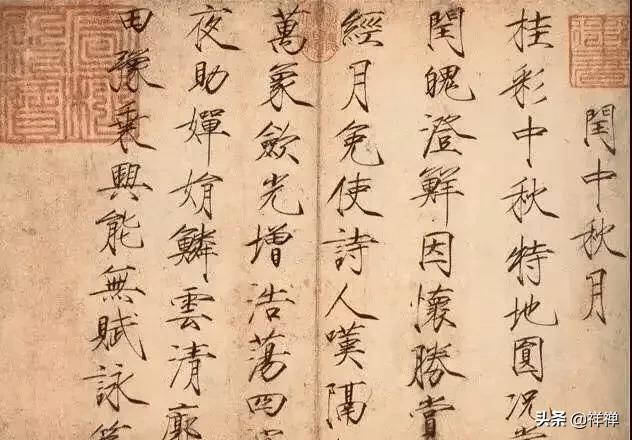 閏中秋月
桂彩中秋特地圓況
閏魄澄鮮因懷勝賞
經月免使詩人嘆隔
萬象斂光增浩蕩四
夜助嬋娟鱗雲清廓
田豫乘興能無賦詠
头条 @祥禅